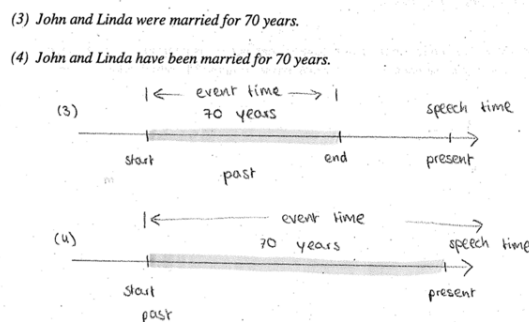 (3) John and Linda were married for 70 years.
(4) John and Linda have been married for 70 years.
event time
(3) 70 years speech time
start end present
past
event time
(4) 70 years speech time
start present
past